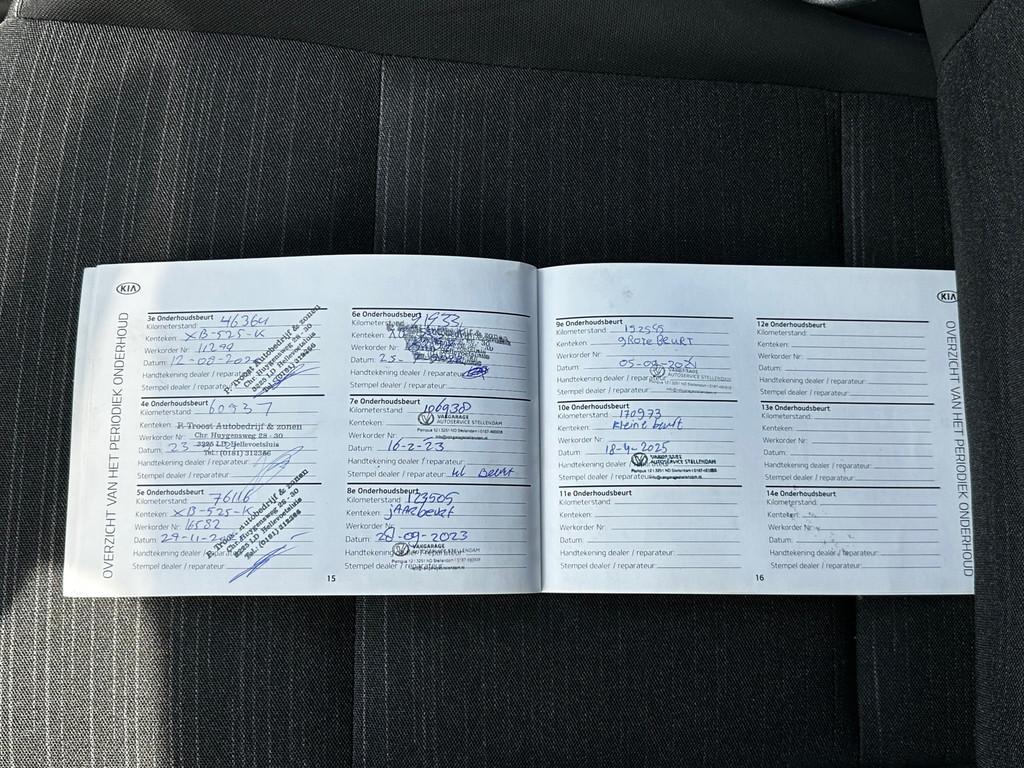 KIA
OVERZICHT VAN HET PERIODIEK ONDERHOUD
3e Onderhoudsbeurt
Kilometerstand: 46364
Kenteken: XB-525-K
Werkorder Nr: 11299
Datum: 12-08-202
Handtekening dealer / reparateur:
Stempel dealer / reparateur:
P. Troost Autobedrijf & zonen
Chr Huygensweg 28 - 30
3225 LD Hellevoetsluis
Tel: (0181) 312386
4e Onderhoudsbeurt
Kilometerstand: 60937
Kenteken:
Werkorder Nr:
Datum: 23
Handtekening dealer / reparateur:
Stempel dealer / reparateur:
P. Troost Autobedrijf & zonen
Chr Huygensweg 28 - 30
3225 LD Hellevoetsluis
Tel: (0181) 312386
5e Onderhoudsbeurt
Kilometerstand: 76116
Kenteken: XB-525-K
Werkorder Nr: 16582
Datum: 29-11-20
Handtekening dealer / reparateur:
Stempel dealer / reparateur:
P. Troost Autobedrijf & zonen
Chr Huygensweg 28 - 30
3225 LD Hellevoetsluis
Tel: (0181) 312386
6e Onderhoudsbeurt
Kilometerstand: 91933
Kenteken:
Werkorder Nr:
Datum: 23-
Handtekening dealer / reparateur:
Stempel dealer / reparateur:
7e Onderhoudsbeurt
Kilometerstand: 106938
Kenteken:
VAKGARAGE
AUTOSERVICE STELLENDAM
Werkorder Nr:
Datum: 16-2-23
Handtekening dealer / reparateur:
Stempel dealer / reparateur: kl Beurt
8e Onderhoudsbeurt
Kilometerstand: 123505
Kenteken: jAARbeurt
Werkorder Nr:
Datum: 20-09-2023
Handtekening dealer / reparateur:
VAKGARAGE
AUTOSERVICE STELLENDAM
Stempel dealer / reparateur:
15
9e Onderhoudsbeurt
Kilometerstand:
Kenteken: grote Beurt
Werkorder Nr:
Datum: 05-09-
Handtekening dealer / reparateur:
VAKGARAGE
AUTOSERVICE STELLENDAM
Stempel dealer / reparateur:
10e Onderhoudsbeurt
Kilometerstand: 170973
Kenteken: Kleine beurt
Werkorder Nr:
Datum: 18-4-2025
Handtekening dealer / reparateur:
VAKGARAGE
AUTOSERVICE STELLENDAM
Stempel dealer / reparateur:
11e Onderhoudsbeurt
Kilometerstand:
Kenteken:
Werkorder Nr:
Datum:
Handtekening dealer / reparateur:
Stempel dealer / reparateur:
12e Onderhoudsbeurt
Kilometerstand:
Kenteken:
Werkorder Nr:
Datum:
Handtekening dealer / reparateur:
Stempel dealer / reparateur:
13e Onderhoudsbeurt
Kilometerstand:
Kenteken:
Werkorder Nr:
Datum:
Handtekening dealer / reparateur:
Stempel dealer / reparateur:
14e Onderhoudsbeurt
Kilometerstand:
Kenteken:
Werkorder Nr:
Datum:
Handtekening dealer / reparateur:
Stempel dealer / reparateur:
16
KIA
OVERZICHT VAN HET PERIODIEK ONDERHOUD